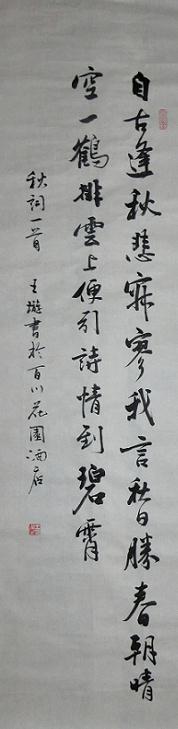 自古逢秋悲寂寥我言秋日勝春朝晴
空一鶴排雲上便引詩情到碧霄
秋詞一首
王璇書於百川花園酒店